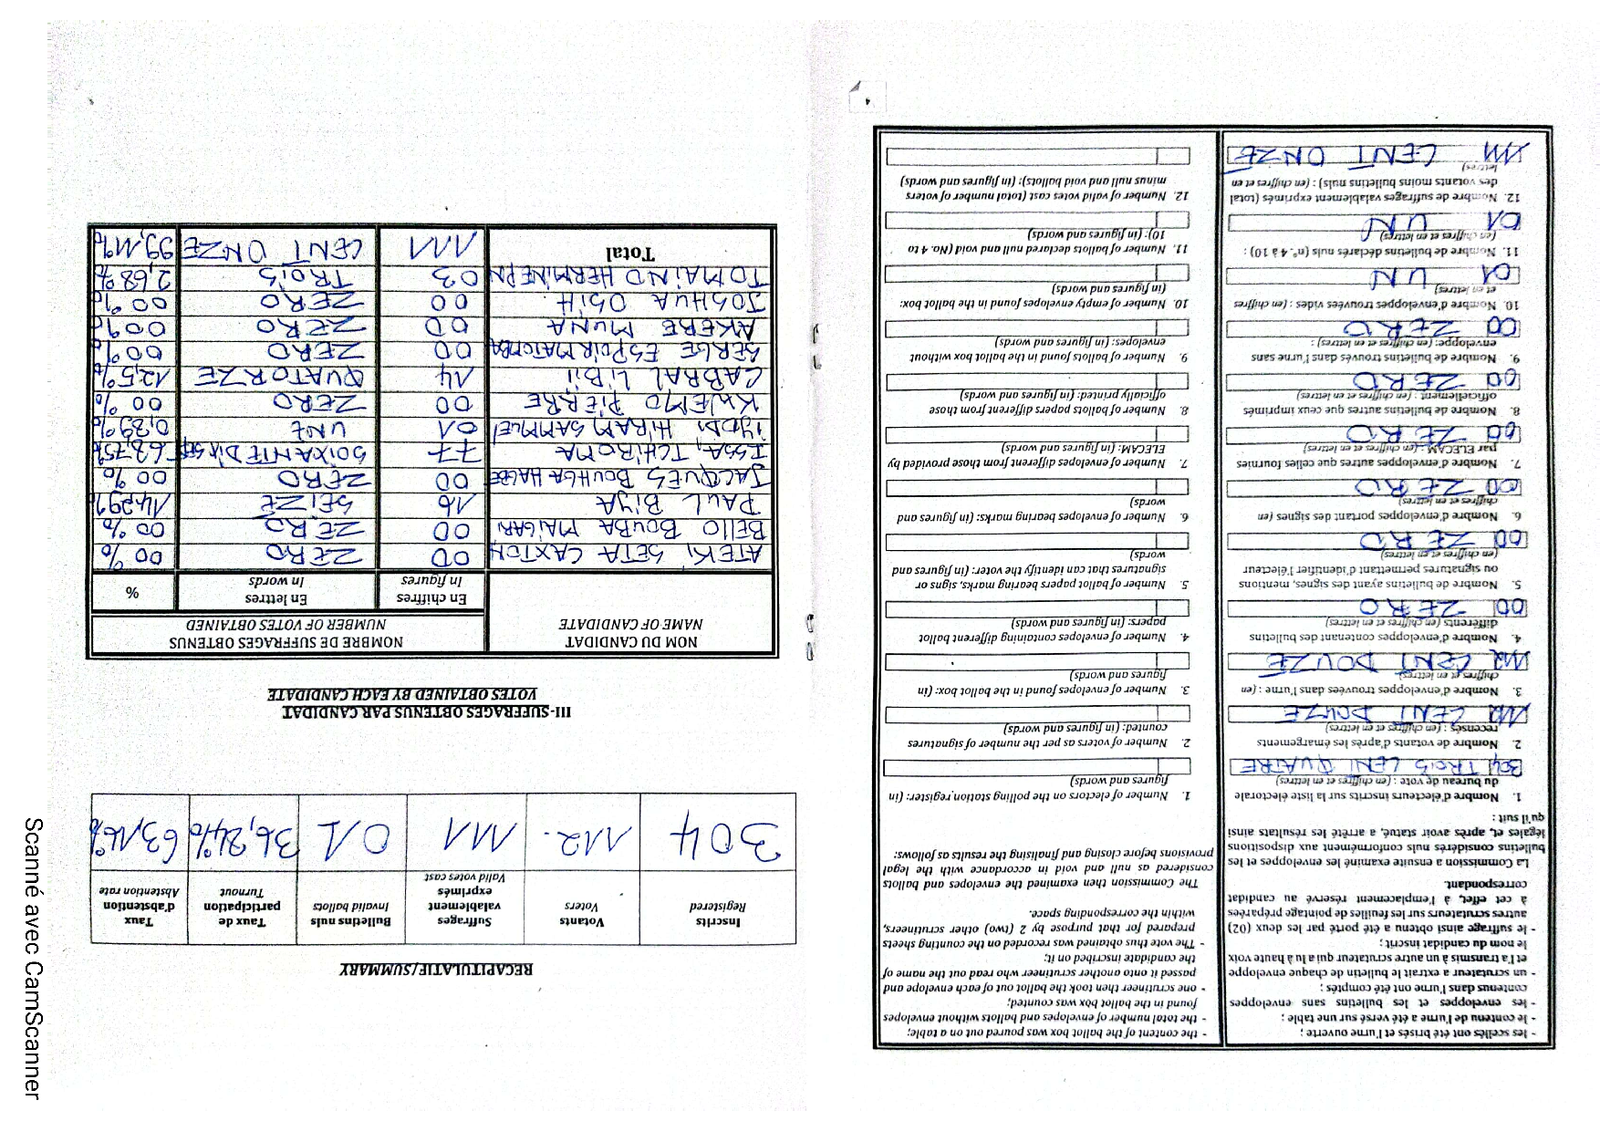 - les scellés ont été brisés et l'urne ouverte ;
- le contenu de l'urne a été versé sur une table ;
- les enveloppes et les bulletins sans enveloppes
contenus dans l'urne ont été comptés ;
- un scrutateur a extrait le bulletin de chaque enveloppe
et l'a transmis à un autre scrutateur qui a lu à haute voix
le nom du candidat inscrit ;
- le suffrage ainsi obtenu a été porté par les deux (02)
autres scrutateurs sur les feuilles de pointage préparées
à cet effet, à l'emplacement réservé au candidat
correspondant.
La Commission a ensuite examiné les enveloppes et les
bulletins considérés nuls conformément aux dispositions
légales et, après avoir statué, a arrêté les résultats ainsi
qu'il suit :
1. Nombre d'électeurs inscrits sur la liste électorale
du bureau de vote : (en chiffres et en lettres)
304 TROIS CENT QUATRE
2. Nombre de votants d'après les émargements
recensés : (en chiffres et en lettres)
112 CENT DOUZE
3. Nombre d'enveloppes trouvées dans l'urne : (en
chiffres et en lettres)
112 CENT DOUZE
4. Nombre d'enveloppes contenant des bulletins
différents (en chiffres et en lettres)
00 ZERO
5. Nombre de bulletins ayant des signes, mentions
ou signatures permettant d'identifier l'électeur
(en chiffres et en lettres)
00 ZERO
6. Nombre d'enveloppes portant des signes (en
chiffres et en lettres)
00 ZERO
7. Nombre d'enveloppes autres que celles fournies
par ELECAM : (en chiffres et en lettres)
00 ZERO
8. Nombre de bulletins autres que ceux imprimés
officiellement : (en chiffres et en lettres)
00 ZERO
9. Nombre de bulletins trouvés dans l'urne sans
enveloppe: (en chiffres et en lettres) :
00 ZERO
10. Nombre d'enveloppes trouvées vides : (en chiffres
et en lettres)
01 UN
11. Nombre de bulletins déclarés nuls (n°. 4 à 10) :
(en chiffres et en lettres)
01 UN
12. Nombre de suffrages valablement exprimés (total
des votants moins bulletins nuls) : (en chiffres et en
lettres)
111 CENT ONZE
- the content of the ballot box was poured out on a table;
- the total number of envelopes and ballots without envelopes
found in the ballot box was counted;
- one scrutineer then took the ballot out of each envelope and
passed it onto another scrutineer who read out the name of
the candidate inscribed on it;
- The vote thus obtained was recorded on the counting sheets
prepared for that purpose by 2 (two) other scrutineers,
within the corresponding space.
The Commission then examined the envelopes and ballots
considered as null and void in accordance with the legal
provisions before closing and finalising the results as follows:
1. Number of electors on the polling station register: (in
figures and words)
2. Number of voters as per the number of signatures
counted: (in figures and words)
3. Number of envelopes found in the ballot box: (in
figures and words)
4. Number of envelopes containing different ballot
papers: (in figures and words)
5. Number of ballot papers bearing marks, signs or
signatures that can identify the voter: (in figures and
words)
6. Number of envelopes bearing marks: (in figures and
words)
7. Number of envelopes different from those provided by
ELECAM: (in figures and words)
8. Number of ballots papers different from those
officially printed: (in figures and words)
9. Number of ballots found in the ballot box without
envelopes: (in figures and words)
10. Number of empty envelopes found in the ballot box:
(in figures and words)
11. Number of ballots declared null and void (No. 4 to
10): (in figures and words)
12. Number of valid votes cast (total number of voters
minus null and void ballots): (in figures and words)
4
RECAPITULATIF/SUMMARY
Inscrits Registered | Votants Voters | Suffrages valablement exprimés Valid votes cast | Bulletins nuls Invalid ballots | Taux de participation Turnout | Taux d'abstention Abstention rate
304 | 112. | 111 | 01 | 36,24% | 63,16%
III-SUFFRAGES OBTENUS PAR CANDIDAT
VOTES OBTAINED BY EACH CANDIDATE
NOM DU CANDIDAT NAME OF CANDIDATE | NOMBRE DE SUFFRAGES OBTENUS NUMBER OF VOTES OBTAINED
En chiffres In figures | En lettres In words | %
ATEKI SETA CAXTON | 00 | ZERO | 00 %
BELLO BOUBA MAIGARI | 00 | ZERO | 00 %
PAUL BIYA | 16 | SEIZE | 14,29%
JACQUES BOUHGA HAGBE | 00 | ZERO | 00 %
ISSA TCHIROMA | 77 | SOIXANTE DIX SEPT | 68,75%
IYODI HIRAM SAMMUEL | 01 | UNE | 0,89%
KWEMO PIERRE | 00 | ZERO | 00 %
CABRAL LIBII | 14 | QUATORZE | 12,5%
SERGE ESPOIR MATOMBA | 00 | ZERO | 00%
AKERE MUNA | 00 | ZERO | 00%
JOSHUA OSIH | 00 | ZERO | 00 %
TOMAINO HERMINE PN | 03 | TROIS | 2,68%
Total | 111 | CENT ONZE | 99,11%
Scanné avec CamScanner